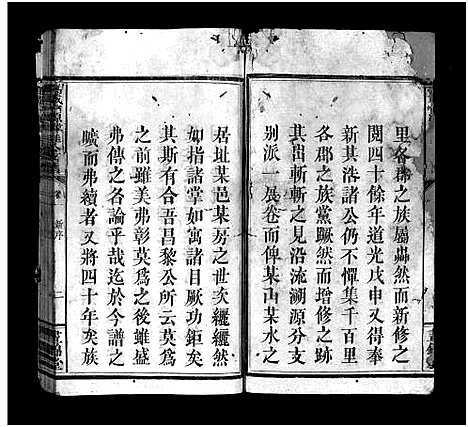 里各郡之族屬轟然而新修之
閱四十餘年道光戊申又得奉
新其濬諸公仍不憚集千百里
各郡之族黨蹶然而增修之跡
其畄斬斬之見沿流溯源分支
别派一展卷而俾某山某水之
居址某邑某房之世次纚纚然
如指諸掌如寓諸目厥功鉅矣
其斯有合吾昌黎公所云莫爲
之前雖美弗彰莫爲之後雖盛
弗傳之名論乎哉迄於今譜之
曠而弗續者又將四十年矣族
新序
二